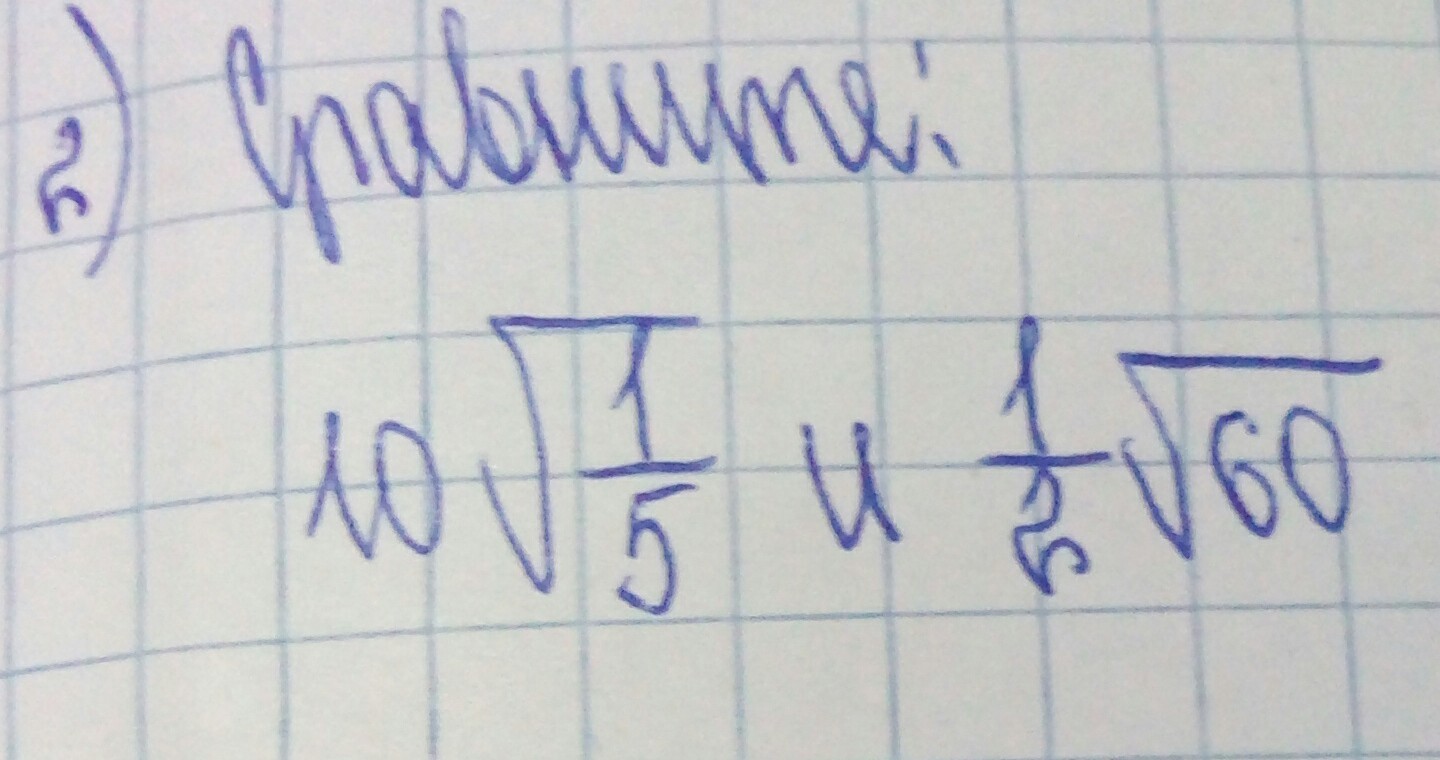 2) Сравните:
10√(1/5) и 1/2 √60